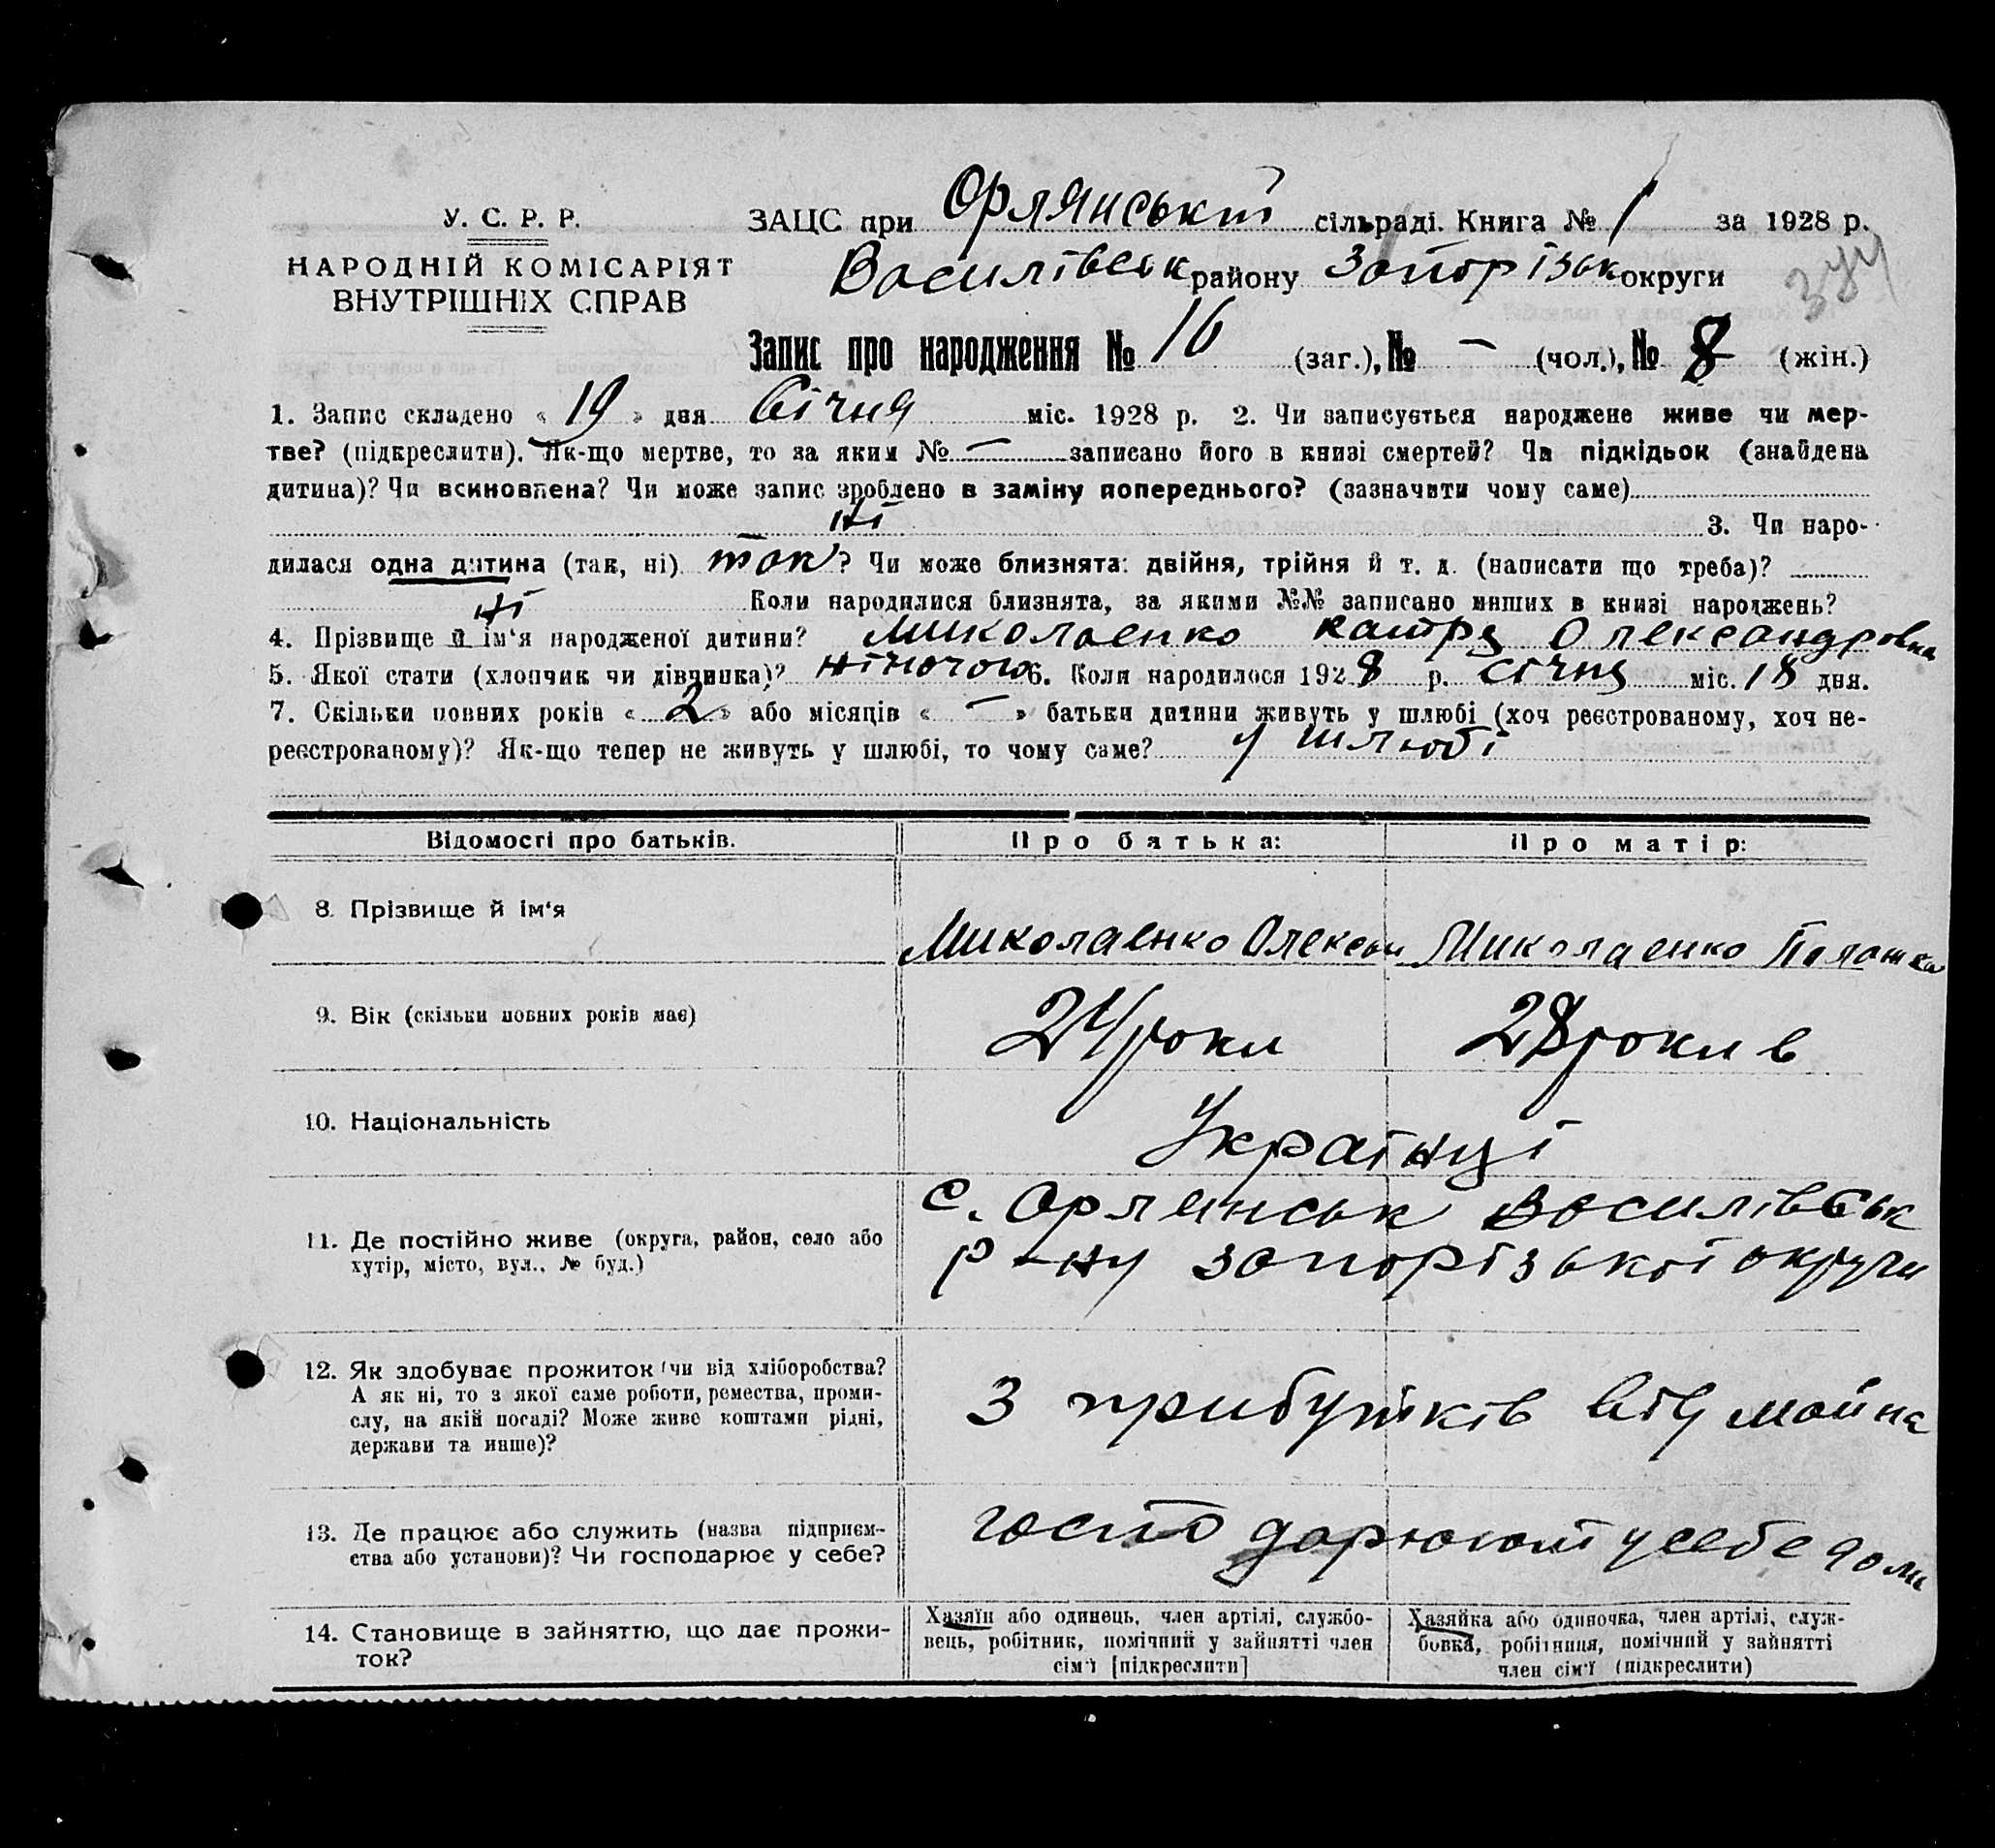 У. С. Р. Р.
НАРОДНІЙ КОМІСАРІЯТ
ВНУТРІШНІХ СПРАВ
ЗАЦС при Орлянській сільраді. Книга № 1 за 1928 р.
Василівськ району Запорізьк округи
344
Запис про народження № 16 (заг.), № – (чол.), № 8 (жін.)
1. Запис складено « 19 » дня Січня міс. 1928 р. 2. Чи записується народжене живе чи мер-
тве? (підкреслити). Як-що мертве, то за яким № — записано його в книзі смертей? Чи підкідьок (знайдена
дитина)? Чи всиновлена? Чи може запис зроблено в заміну попереднього? (зазначити чому саме)
ні 3. Чи наро-
дилася одна дитина (так, ні) так? Чи може близнята: двійня, трійня й т. д. (написати що треба)?
ні Коли народилися близнята, за якими №№ записано инших в книзі народжень?
4. Прізвище й ім'я народженої дитини? Миколаенко Катря Олександровна
5. Якої стати (хлопчик чи дівчинка)? жіночої 6. Коли народилося 1928 р. січня міс. 18 дня.
7. Скільки повних років « 2 » або місяців « – » батьки дитини живуть у шлюбі (хоч реєстрованому, хоч не-
реєстрованому)? Як-що тепер не живуть у шлюбі, то чому саме? у шлюбі
Відомості про батьків. Про батька: Про матір:
8. Прізвище й ім'я
Миколаенко Олександ Миколаенко Палажка
9. Вік (скільки повних років має) 24 роки 28 роки в
10. Національність Українці
11. Де постійно живе (округа, район, село або
хутір, місто, вул., № буд.)
с. Орлянськ Василівськ
р-ну запорізької округи
12. Як здобуває прожиток (чи від хліборобства?
А як ні, то з якої саме роботи, ремества, проми-
слу, на якій посаді? Може живе коштами рідні,
держави та инше)?
З прибутків від майна
13. Де працює або служить (назва підприєм-
ства або установи)? Чи господарює у себе?
господарюют у себе дома
14. Становище в зайняттю, що дає прожи-
ток?
Хазяїн або одинець, член артілі, службо-
вець, робітник, помічний у зайнятті член
сім'ї [підкреслити]
Хазяйка або одиночка, член артілі, служ-
бовка, робітниця, помічний у зайнятті
член сім'ї (підкреслити)